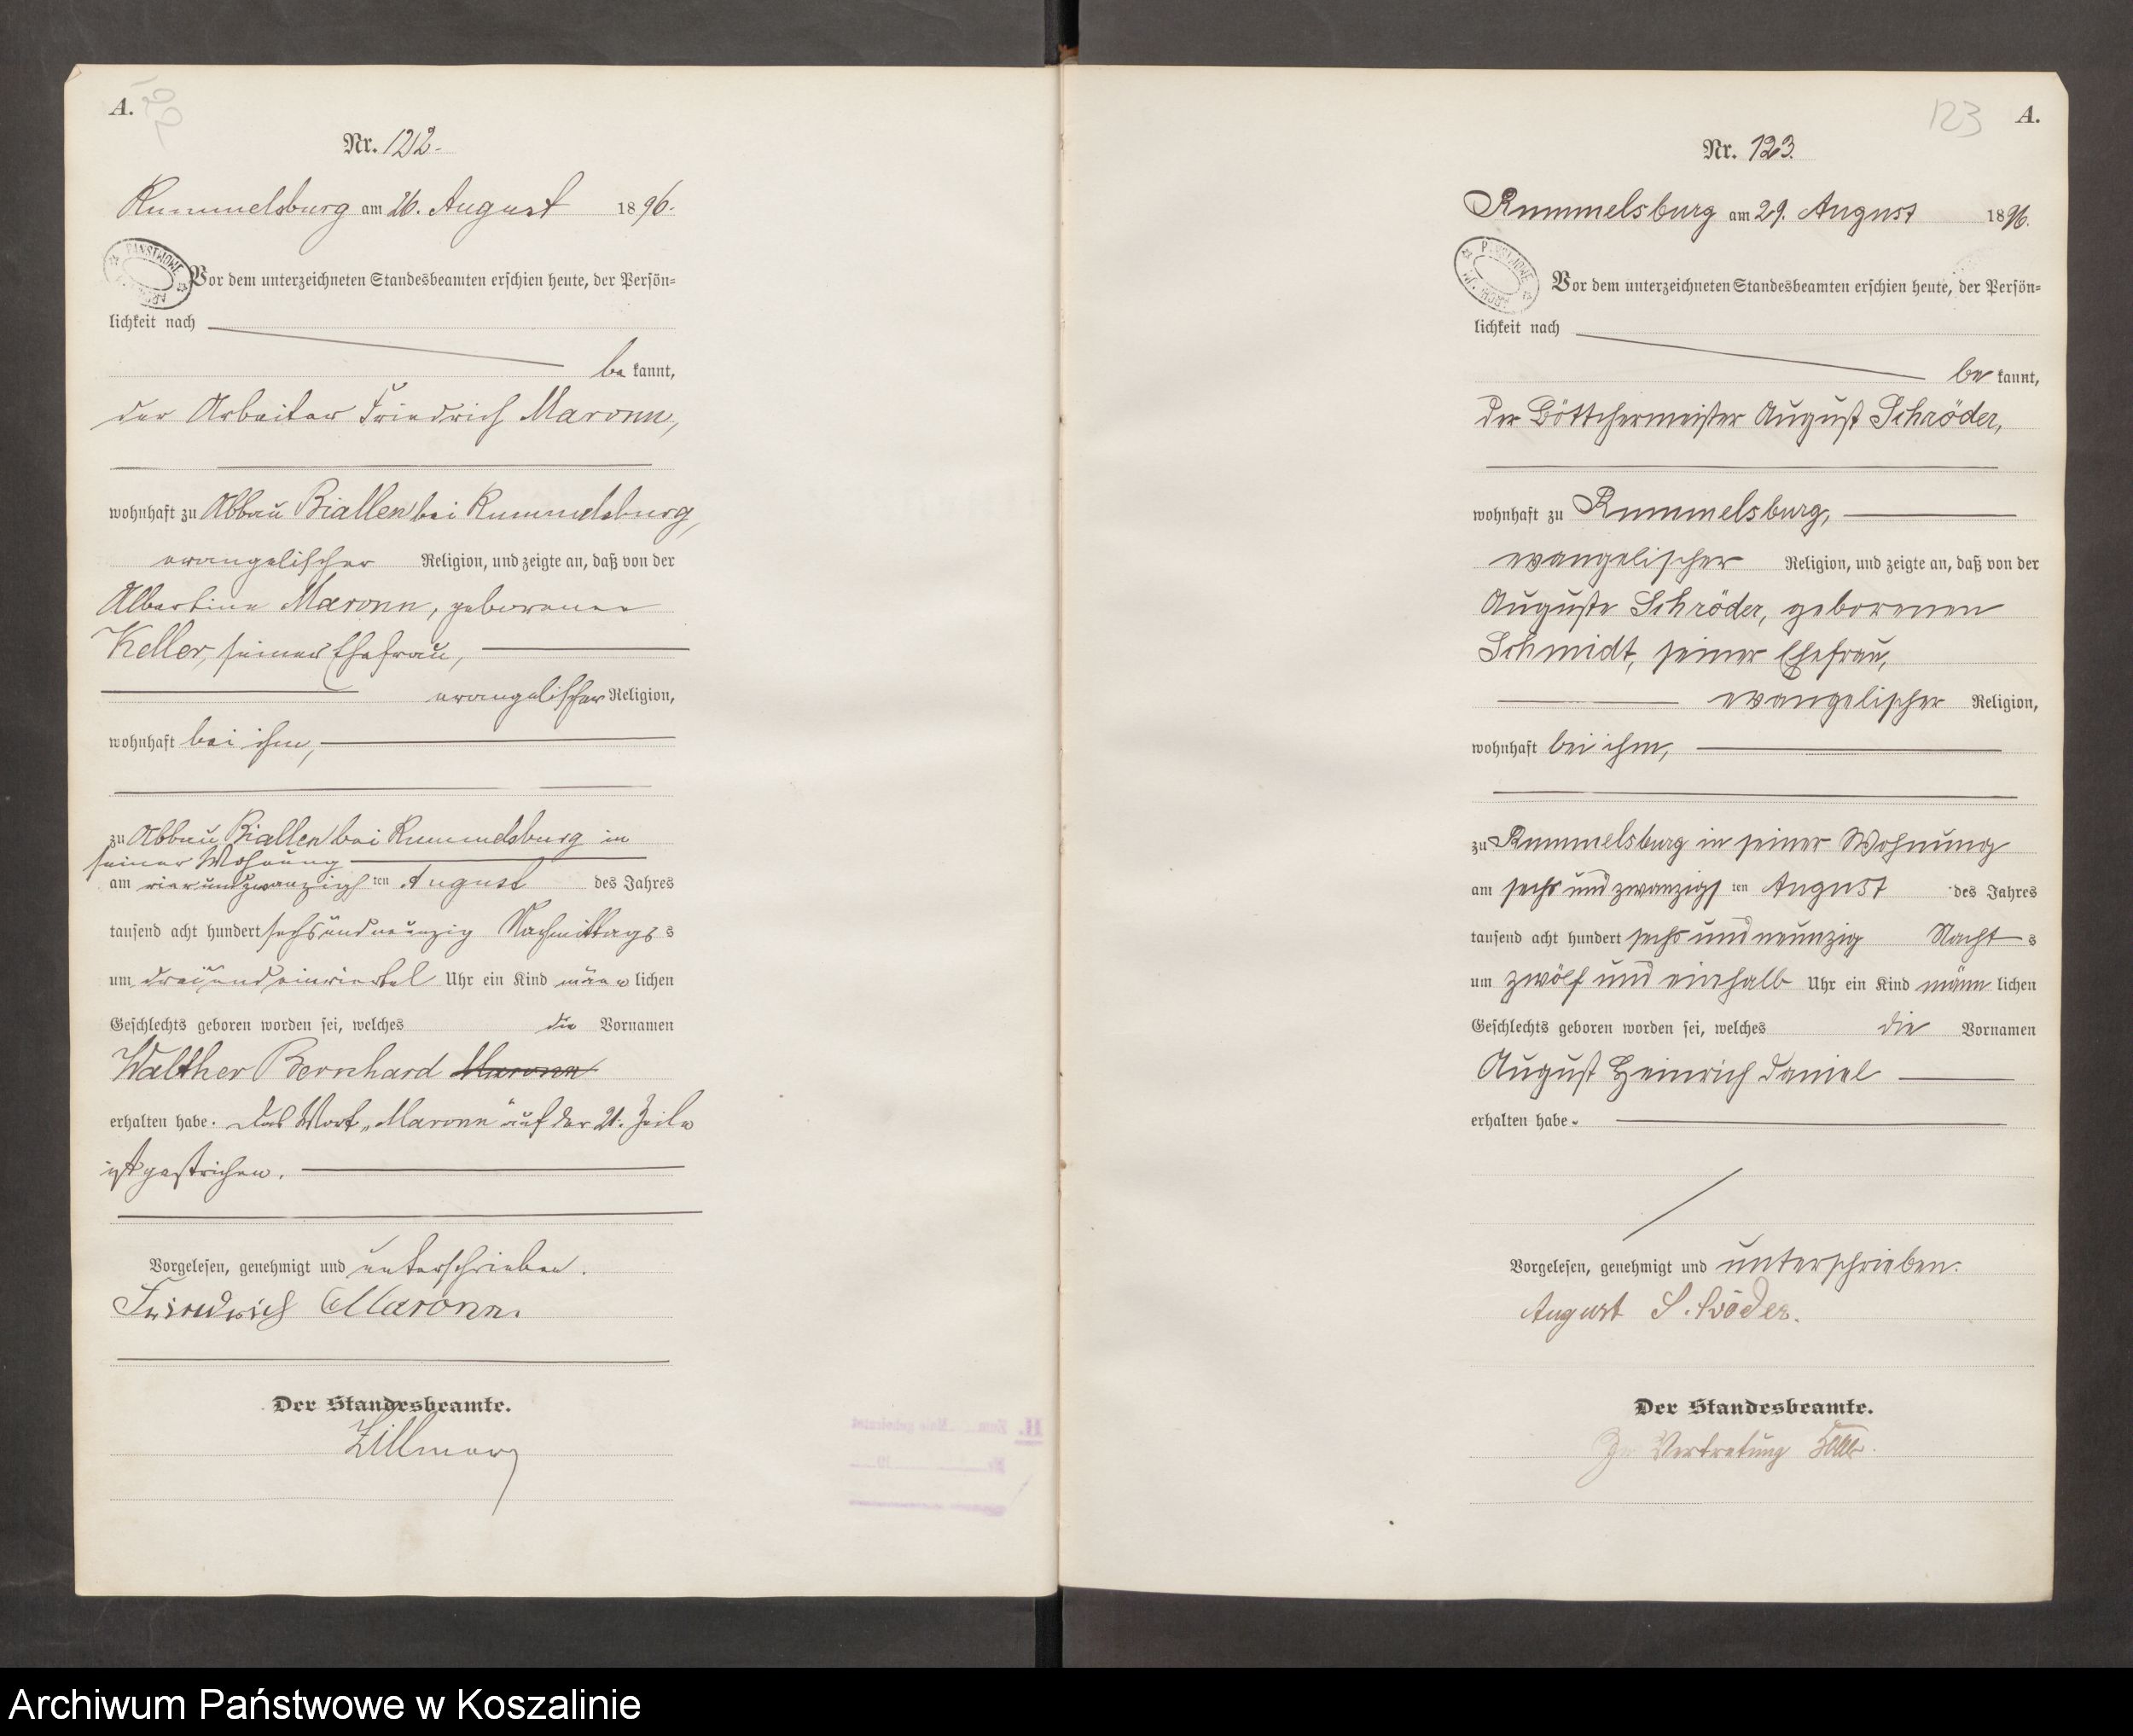 A.
122
Nr. 122.
Rummelsburg am 26. August 1896.
PAŃSTWOWE
Vor dem unterzeichneten Standesbeamten erschien heute, der Persön=
lichkeit nach
be kannt,
der Arbeiter Friedrich Maronn,
wohnhaft zu Abbau Biallen bei Rummelsburg,
evangelischer Religion, und zeigte an, daß von der
Albertine Maronn, geborenen
Keller, seiner Ehefrau,
evangelischer Religion,
wohnhaft bei ihm,
zu Abbau Biallen bei Rummelsburg in
seiner Wohnung
am vierundzwanzigsten August des Jahres
tausend acht hundert sechsundneunzig Nachmittags s
um dreiundeinviertel Uhr ein Kind männlichen
Geschlechts geboren worden sei, welches die Vornamen
Walther Bernhard Maronn
erhalten habe. Das Wort „Maronn“ auf der 21. Zeile
ist gestrichen.
Vorgelesen, genehmigt und unterschrieben.
Friedrich Maronn.
Der Standesbeamte.
Zillmer
123
A.
Nr. 123.
Rummelsburg am 29. August 1896.
Vor dem unterzeichneten Standesbeamten erschien heute, der Persön=
lichkeit nach
be kannt,
der Böttchermeister August Schröder,
wohnhaft zu Rummelsburg,
evangelischer Religion, und zeigte an, daß von der
Auguste Schröder, geborenen
Schmidt, seiner Ehefrau,
evangelischer Religion,
wohnhaft bei ihm,
zu Rummelsburg in seiner Wohnung
am sechs und zwanzigsten August des Jahres
tausend acht hundert sechs und neunzig Nacht s
um zwölf und einhalb Uhr ein Kind männlichen
Geschlechts geboren worden sei, welches die Vornamen
August Heinrich Daniel
erhalten habe.
Vorgelesen, genehmigt und unterschrieben.
August Schröder.
Der Standesbeamte.
In Vertretung
Archiwum Państwowe w Koszalinie